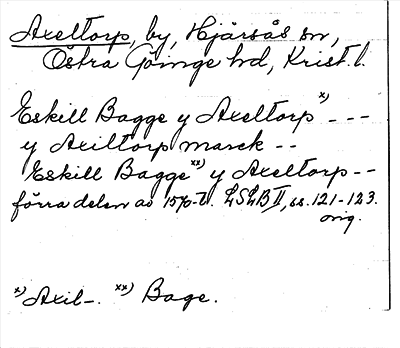 Axeltorp, by, Hjärsås sn,
Östra Göinge hd, Krist. l.
Eskill Bagge y Axeltorp x) - - -
y Axiltorp marck - -
Eskill Bagge xx) y Axeltorp - -
förra delen av 15/0-t. LSLB II, ss. 121-123.
orig.
x) Axil-. xx) Bage.